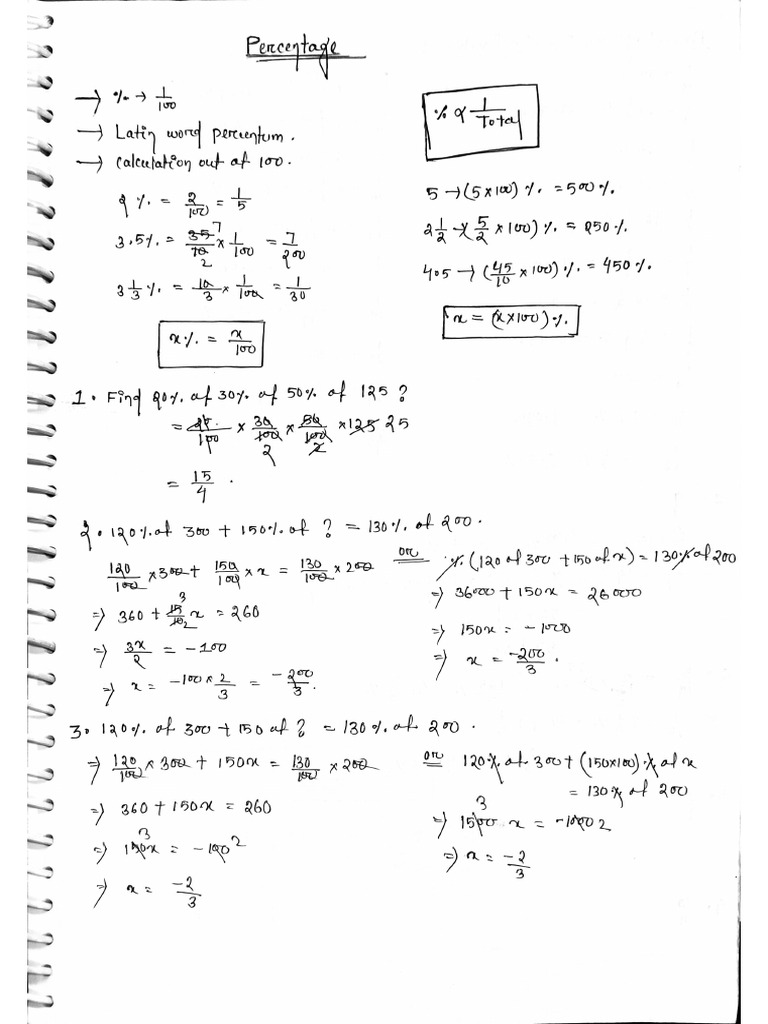 Percentage
→ % → 1/100
→ Latin word percentum.
→ Calculation out of 100.
2 % = 2/100 = 1/5
3.5% = 35/10 × 1/100 = 7/200
7
2
3 1/3 % = 10/3 × 1/100 = 1/30
x % = x/100
% ∝ 1/Total
5 → (5×100) % = 500 %.
2 1/2 → (5/2 × 100) % = 250 %.
4.5 → (45/10 × 100) % = 450 %.
x = (x×100) %.
1. Find 20% of 30% of 50% of 125 ?
= 20/100 × 30/100 × 50/100 × 125 25
2 2
= 15/4 .
2. 120% of 300 + 150% of ? = 130% of 200.
120/100 × 300 + 150/100 × x = 130/100 × 200
⇒ 360 + 15/10 x = 260
3
2
⇒ 3x/2 = -100
⇒ x = -100 × 2/3 = -200/3.
or % (120 of 300 + 150 of x) = 130% of 200
⇒ 36000 + 150x = 26000
⇒ 150x = -1000
⇒ x = -200/3 .
3. 120% of 300 + 150 of ? = 130% of 200.
⇒ 120/100 × 300 + 150x = 130/100 × 200
⇒ 360 + 150x = 260
⇒ 150x = -100 2
3
⇒ x = -2/3
or 120% of 300 + (150×100) % of x
= 130% of 200
3
⇒ 1500 x = -1000 2
⇒ x = -2/3